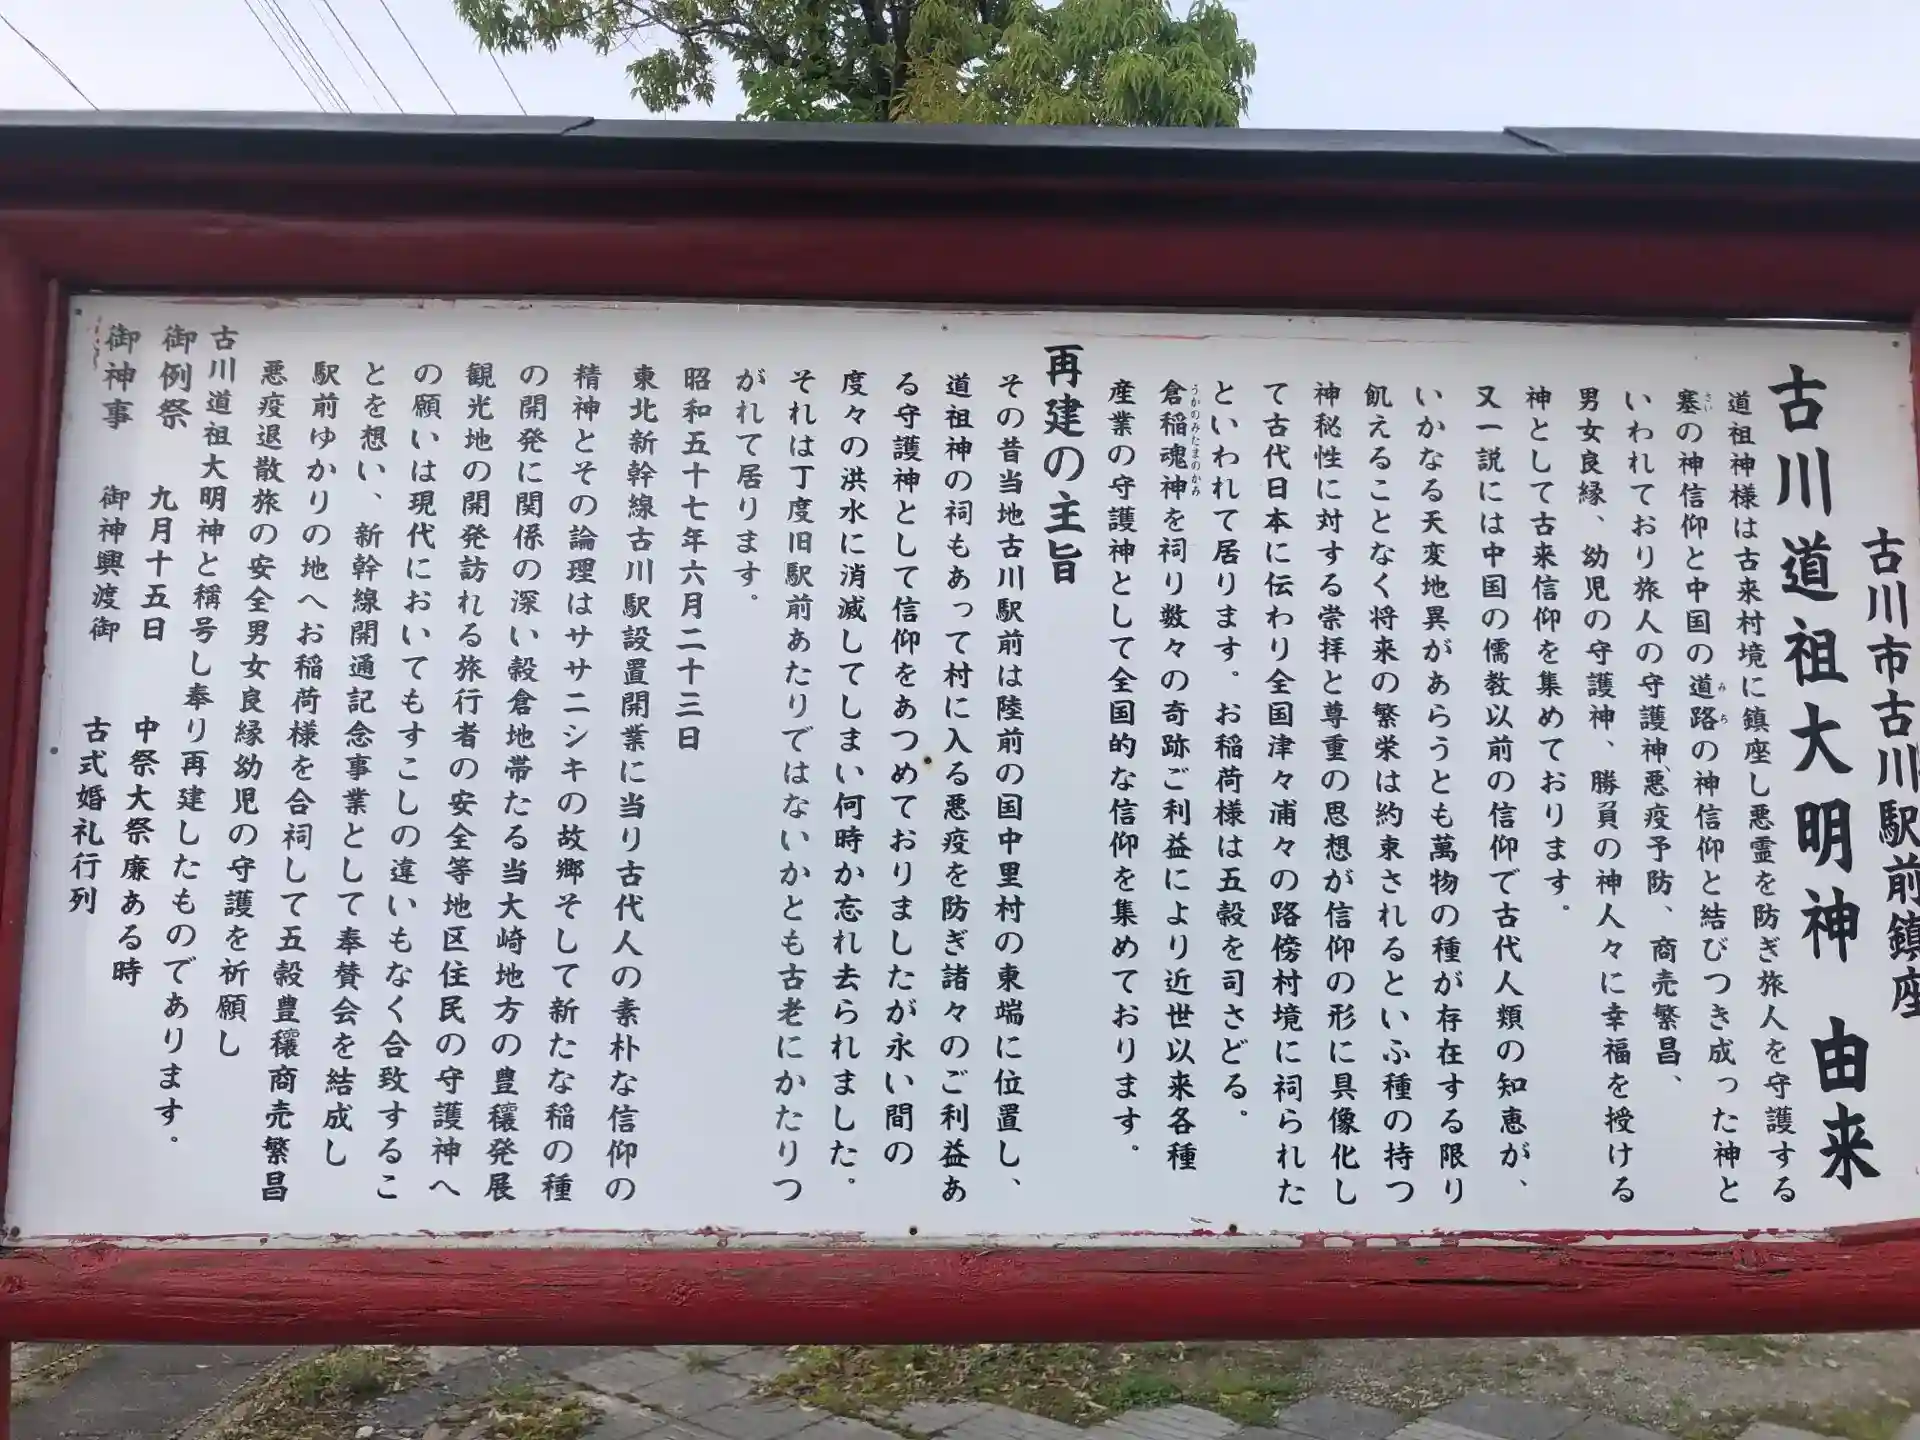 古川市古川駅前鎮座
古川道祖大明神　由来
道祖神様は古来村境に鎮座し悪霊を防ぎ旅人を守護する
塞の神信仰と中国の道路の神信仰と結びつき成った神と
さい
みち
いわれており旅人の守護神、悪疫予防、商売繁昌、
男女良縁、幼児の守護神、勝負の神人々に幸福を授ける
神として古来信仰を集めております。
又一説には中国の儒教以前の信仰で古代人類の知恵が、
いかなる天変地異があらうとも萬物の種が存在する限り
飢えることなく将来の繁栄は約束されるといふ種の持つ
神秘性に対する崇拝と尊重の思想が信仰の形に具像化し
て古代日本に伝わり全国津々浦々の路傍村境に祠られた
といわれて居ります。お稲荷様は五穀を司さどる。
倉稲魂神を祠り数々の奇跡ご利益により近世以来各種
うかのみたまのかみ
産業の守護神として全国的な信仰を集めております。
再建の主旨
その昔当地古川駅前は陸前の国中里村の東端に位置し、
道祖神の祠もあって村に入る悪疫を防ぎ諸々のご利益あ
る守護神として信仰をあつめておりましたが永い間の
度々の洪水に消滅してしまい何時か忘れ去られました。
それは丁度旧駅前あたりではないかとも古老にかたりつ
がれて居ります。
昭和五十七年六月二十三日
東北新幹線古川駅設置開業に当り古代人の素朴な信仰の
精神とその論理はササニシキの故郷そして新たな稲の種
の開発に関係の深い穀倉地帯たる当大崎地方の豊穰発展
観光地の開発訪れる旅行者の安全等地区住民の守護神へ
の願いは現代においてもすこしの違いもなく合致するこ
とを想い、新幹線開通記念事業として奉賛会を結成し
駅前ゆかりの地へお稲荷様を合祠して五穀豊穰商売繁昌
悪疫退散旅の安全男女良縁幼児の守護を祈願し
古川道祖大明神と稱号し奉り再建したものであります。
御例祭　九月十五日　中祭大祭廉ある時
御神事　御神興渡御　古式婚礼行列